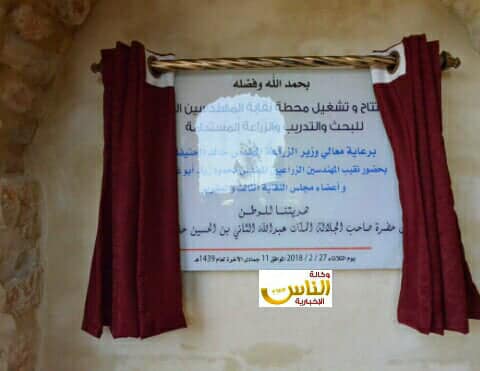 بحمد الله وفضله
تتاح و تشغيل محطة نقابة المهندسين
للبحث والتدريب والزراعة المستدامة
برعاية معالي وزير الزراعة
بحضور نقيب المهندسين الزراعيين المهندس محمود
و أعضاء مجلس النقابة الثالث
هديتنا للوطن
حضرة صاحب الجلالة الملك عبدالله الثاني بن الحسين
يوم الثلاثاء 27 / 2 / 2018 الموافق 11 جمادى الآخرة لعام 1439هـ
وكالة
الناس
الإخبارية